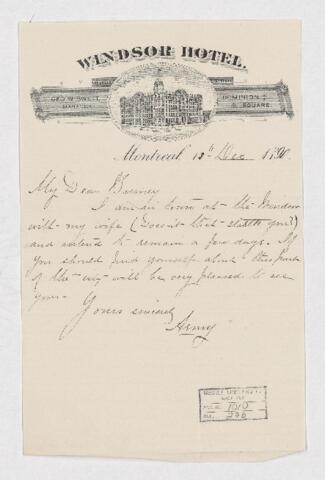 WINDSOR HOTEL.
GEO. W. SWETT, MANAGER
DOMINION SQUARE
Montreal, 12th Dec 1890
My Dear
I am in town at the Windsor
with my wife (Doesn't that startle you?)
and intend to remain a few days. If
you should find yourself about this part
of the city will be very pleased to see
you.
Yours sincerely